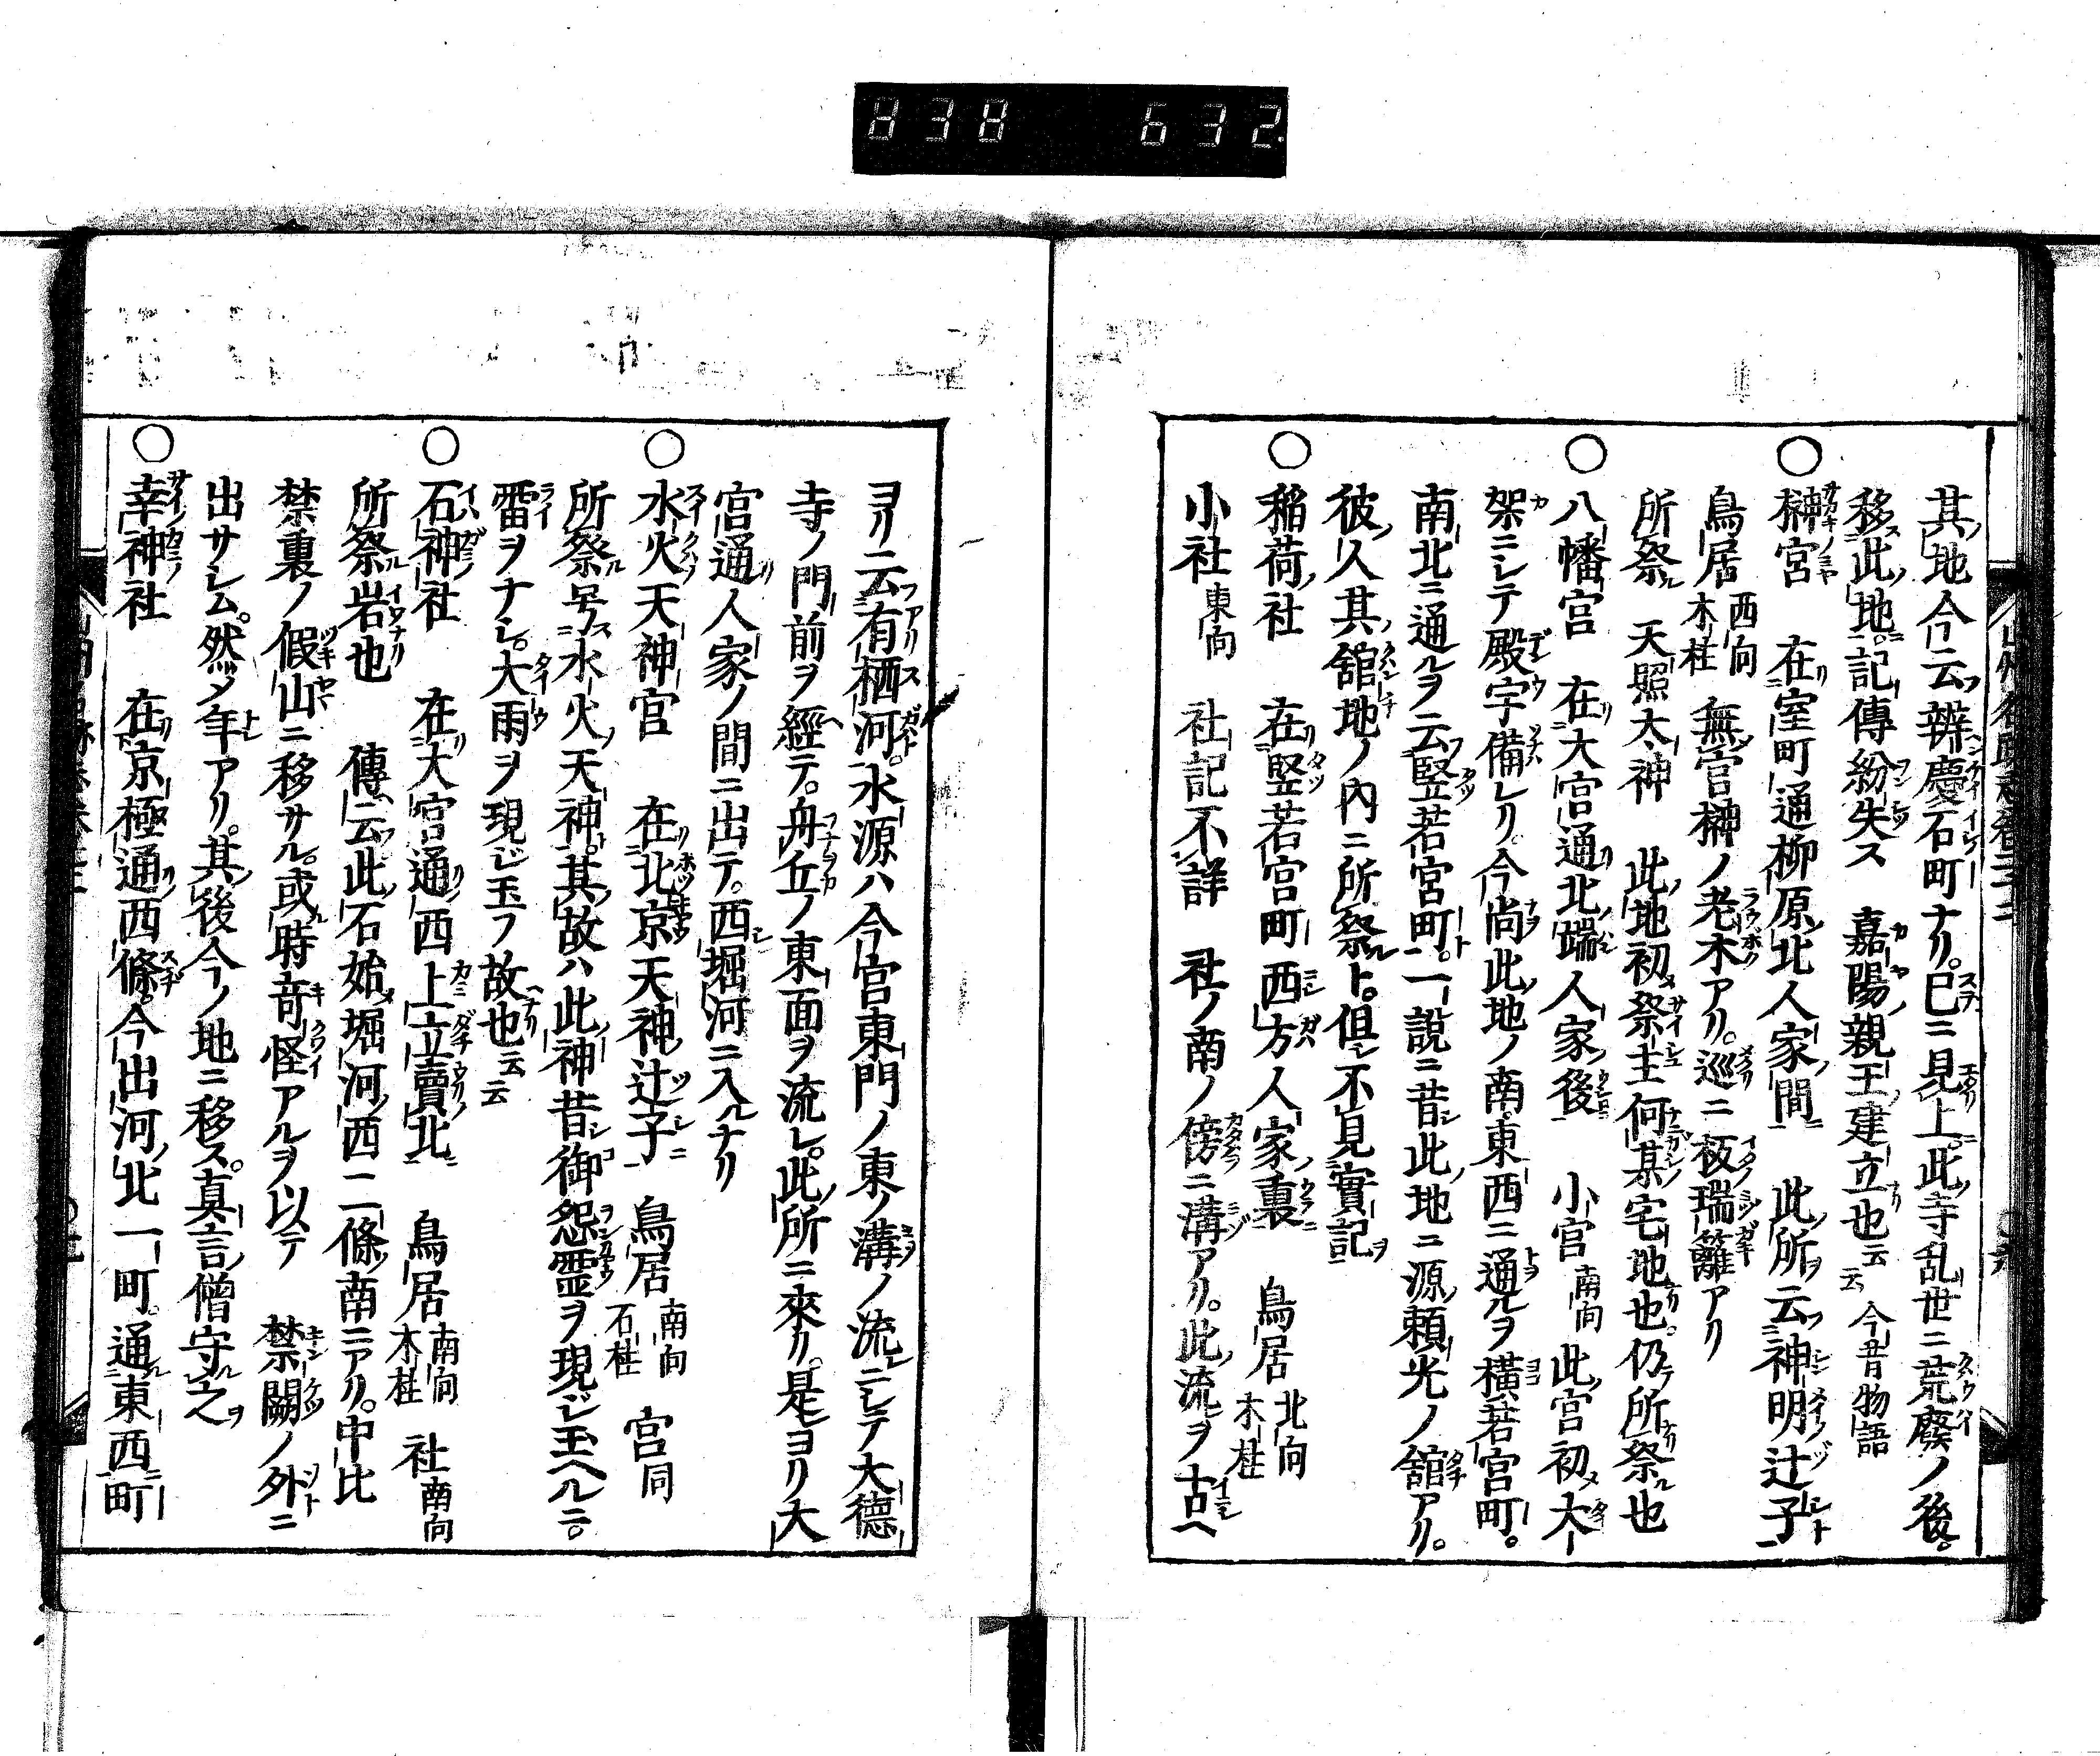 838 632
其地今云辨慶石町ナリ。巳ニ見上。此寺乱世ニ荒廢ノ後。
移此地。記傳紛失ス 嘉陽親王建立也云云 今昔物語
○榊宮 在室町通柳原北人家間 此所云神明辻子
鳥居西向木柱 無官榊ノ老木アリ。巡ニ板瑞籬アリ
所祭 天照太神 此地初祭主何某宅地也。仍所祭也
○八幡宮 在大宮通北端人家後 小宮南向 此宮初大
架ニシテ殿宇備レリ。今尚此地ノ南東西ニ通ルヲ橫若宮町。
南北ニ通ルヲ云竪若宮町。一說ニ昔此地ニ源賴光ノ舘アリ。
彼人其舘地ノ內ニ所祭ト。但不見實記
○稲荷社 在竪若宮町西方人家裏 鳥居北向木柱
小社東向 社記不詳 社ノ南ノ傍ニ溝アリ。此流ヲ古ヘ
ヨリ云有栖河。水源ハ今宮東門ノ東ノ溝ノ流ニシテ大德
寺ノ門前ヲ經テ。舟丘ノ東面ヲ流レ。此所ニ來リ。是ヨリ大
宮通人家ノ間ニ出テ。西堀河ニ入ルナリ
○水火天神宮 在北京天神辻子 鳥居南向石柱 宮同
所祭号水火天神。其故ハ此神昔御怨霊ヲ現ジ玉ヘルニ。
雷ヲナシ。大雨ヲ現ジ玉フ故也云云
○石神社 在大宮通西上立賣北 鳥居南向木柱 社南向
所祭岩也 傳云此石始堀河西二條南ニアリ。中比
禁裏ノ假山ニ移サル。或時竒怪アルヲ以テ 禁闕ノ外ニ
出サレム。然乄年アリ。其後今ノ地ニ移ス。真言僧守之
○幸神社 在京極通西條。今出河北一町。通東西町